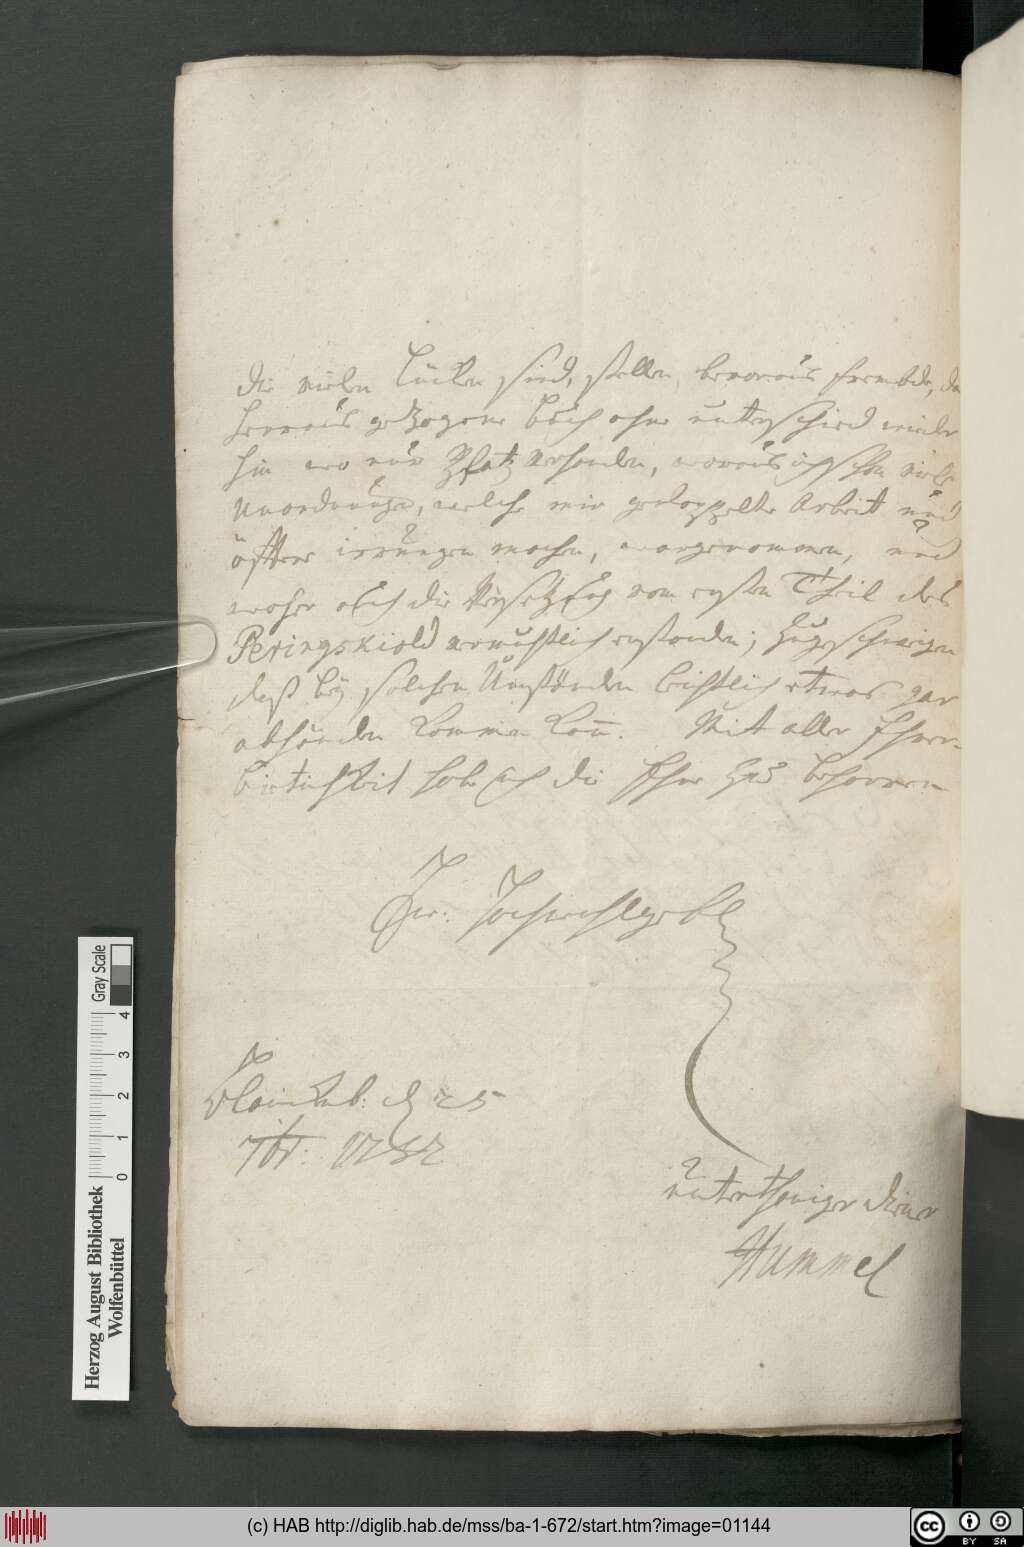 die vielen lücken sind, stellen, bevoraus frembde, das
heraus gezogene buch ohne unterschied wieder
hin wo nur Platz verhanden, woraus ich schon viele
Unordnungen, welche mir gedoppelte Arbeit und
öfftere irrungen machen, wargenommen, und
woher auch die Versetzung vom ersten Theil des
Peringskiold vermuthlich erstanden; zugeschweigen
daß bey solchen Umständen leichtlich etwas gar
abhänden kommen kan. Mit aller Ehrer-
bietichkeit hab ich die Ehre zu beharren
Ew: Hochwohlgeb
Blankenb: d 25
7br: 1732
unterthäniger diener
Hummel
Herzog August Bibliothek
Wolfenbüttel
0 1 2 3 4
Gray Scale
(c) HAB http://diglib.hab.de/mss/ba-1-672/start.htm?image=01144
cc BY SA